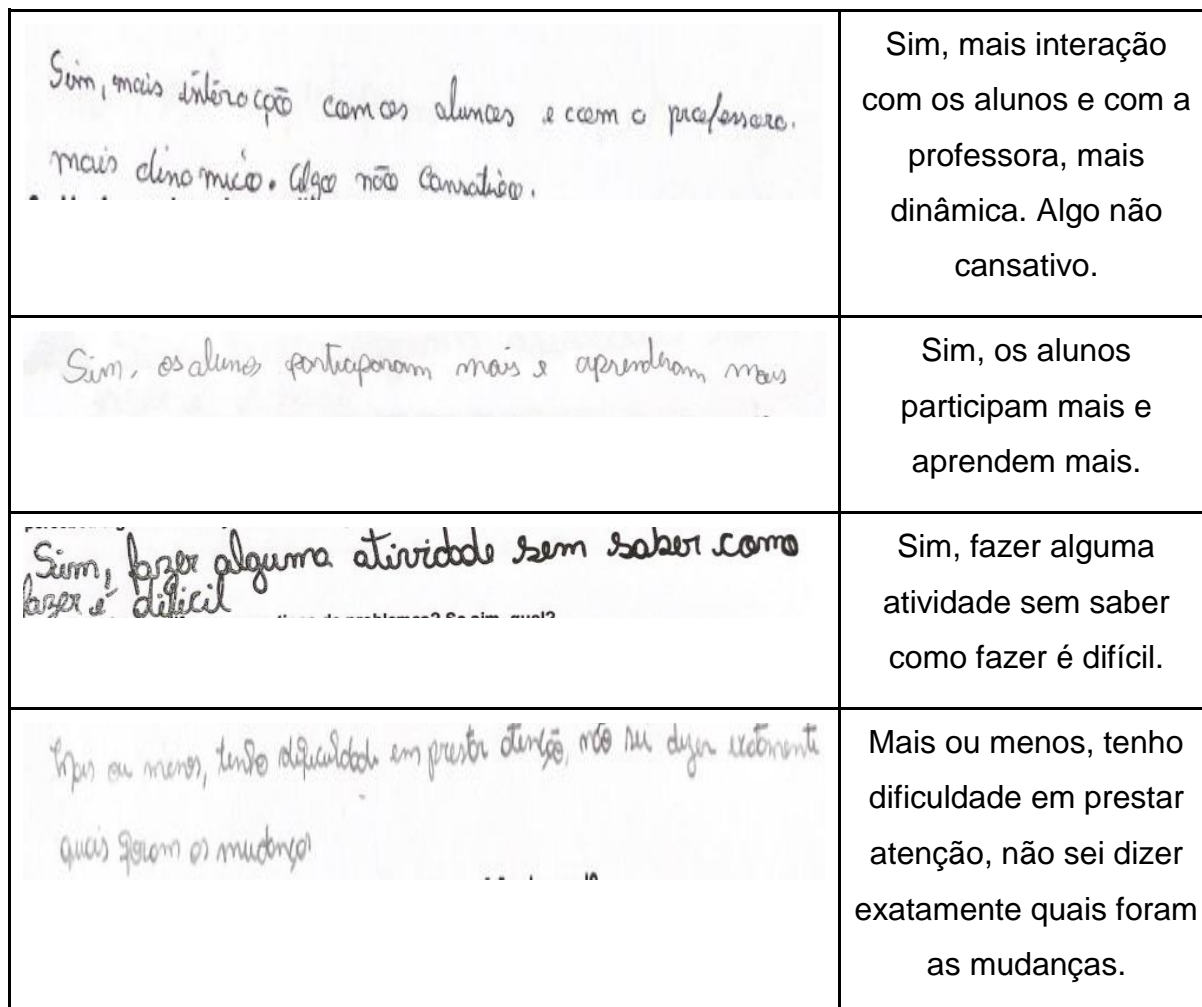 Sim, mais interação com os alunos e com a professora.
mais dinamico. Algo não cansativo.
Sim, mais interação
com os alunos e com a
professora, mais
dinâmica. Algo não
cansativo.
Sim, os alunos participaram mais e aprenderam mais
Sim, os alunos
participam mais e
aprendem mais.
Sim, fazer alguma atividade sem saber como
fazer é dificil
Sim, fazer alguma
atividade sem saber
como fazer é difícil.
Mais ou menos, tenho dificuldade em prestar atenção, não sei dizer exatamente
quais foram as mudanças
Mais ou menos, tenho
dificuldade em prestar
atenção, não sei dizer
exatamente quais foram
as mudanças.